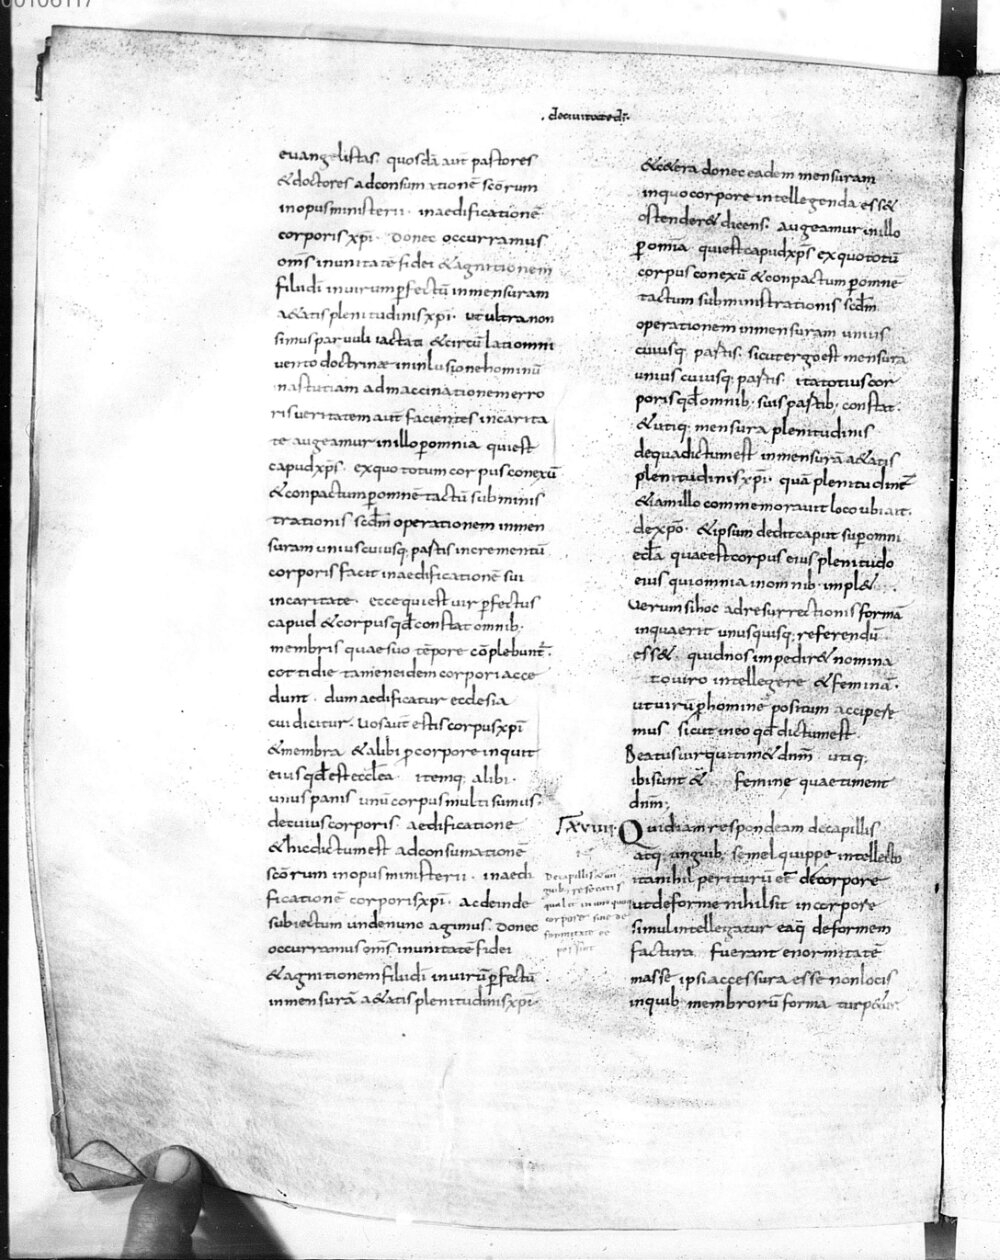 00106117
· deciuitatedī ·
euangelistas. quosdā aut pastores
&doctores adconsummationē scōrum
inopusministerii · inaedificationē
corporis xp̄i · Donec occurramus
oms̄ inunitatefidei &agnitionem
filiidī inuirumꝑfectū inmensuram
a&atisplenitudinisxp̄i · utultranon
simusparuuli iactati &circūlatiomni
uentodoctrinae ininlusionehominū
inastutiam admaccinationemerro
ris ueritatem aut facientes incarita
te augeamur inilloꝑomnia quiest
capudxp̄s · exquototum corpusconexū
&conpactumꝑomnē tactū subminis
trationis scdm̄ operationem inmen
suram uniuscuiusq; partis incrementū
corporis facit inaedificationē sui
incaritate · eccequiest uir ꝑfectus
capud &corpusqd̄constatomnib·
membris quaesuo tēpore cōplebunt̄ ·
cottidie tameneidem corporiacce
dunt · dumaedificatur ecclesia
cuidicitur. uosautestiscorpusxp̄i
&membra &alibi ꝓcorporeinquit
eiusqd̄estecclea · itemq; alibi ·
unuspanis unūcorpusmultisumus ·
decuiuscorporis · aedificatione
&hicdictumest adconsumationē
scōrum inopusministerii · inaedi
ficationē corporisxp̄i · Acdeinde
subiectum undenunc agimus. Donec
occurramus oms̄ inunitatēfidei
&agnitionemfiliidī inuirūꝑfectū
inmensurā a&atisplenitudinisxp̄i·
&c&era donec eadem mensuram
inquocorpore intellegenda ess&
ostender& dicens. augeamurinillo
ꝑomīa quiestcapudxp̄s exquototū
corpus conexū &conpactumꝑomne
tactum subministrationis scdm̄
operationem inmensuram unius
cuiusq; partis. sicutergoest mensura
uniuscuiusq; partis · itatotiuscor
porisqd̄omnib· suis partib· constat ·
&utiq; mensura plenitudinis
dequadictumest inmensurā a&atis
plenitudinisxp̄i · quā plenitudinē
&iamillo commemorauit locoubiait ·
dexpō · &ipsum dedit caput suꝑomni
ecl̄a quaeestcorpus eius plenitudo
eius quiomnia inomnib· impl& ·
Uerumsihoc adresurrectionis formā
inquaerit unusquisq; referendū
ess& · quidnos impedir& nomina
touiro intellegere &feminā ·
utuirūꝓhomine positum accipere
mus sicut ineo qd̄dictumest ·
Beatusuirquitim&dnm̄ · utiq;
ibisunt & femine quaetiment
dnm̄;
Γxviiii· Quidiamrespondeam decapillis
atq; unguib; semel quippe intellecto
itanihil periturū eē decorpore
utdeforme nihilsit incorpore
simulintellegatur eaq; deformem
factura fuerant enormitatē
masse ipsiaccessura esse nonlocis
inquib; membrorū forma turp&ur
Decapillis & un
guib; resecatis